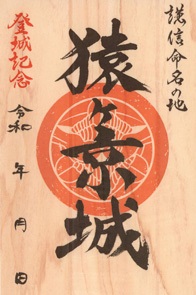 謙信命名の地
猿ヶ京城
登城記念
令和 年 月 日